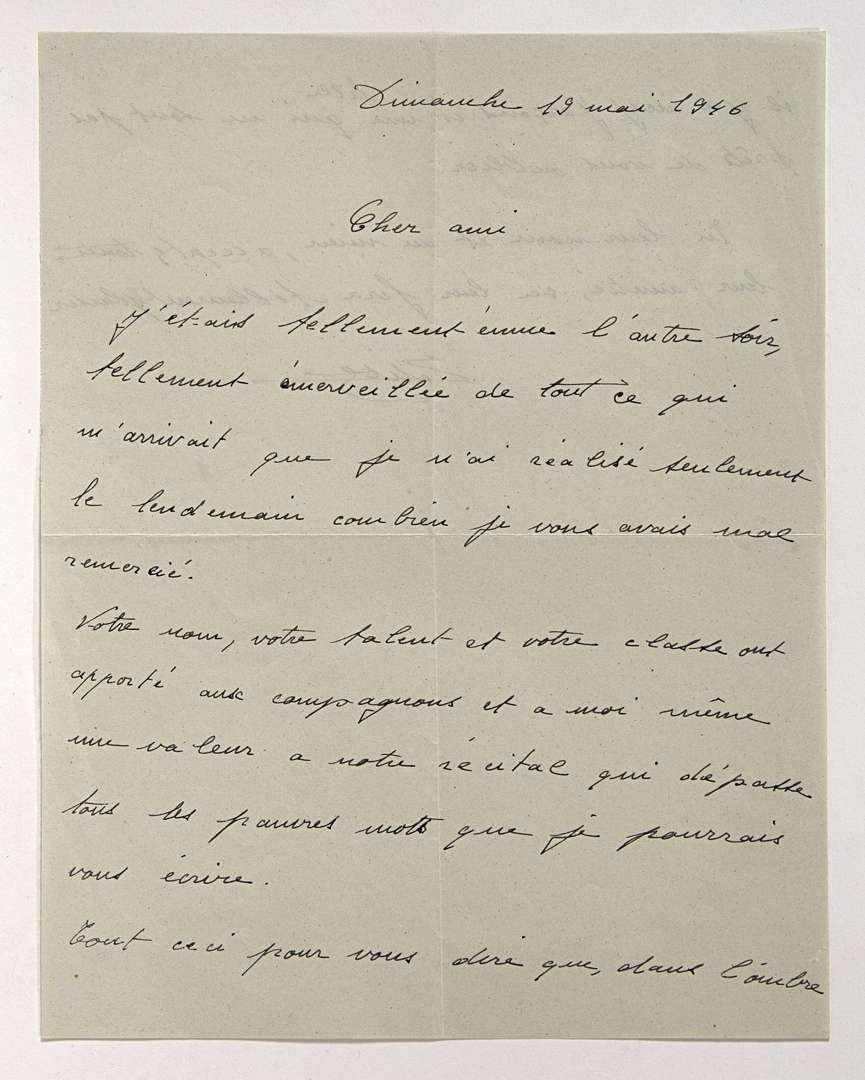 Dimanche 19 mai 1946
Cher ami
J'étais tellement émue l'autre soir,
tellement émerveillée de tout ce qui
m'arrivait que je n'ai réalisé seulement
le lendemain combien je vous avais mal
remercié.
Votre nom, votre talent et votre classe ont
apporté aux compagnons et a moi même
une valeur a notre récital qui dépasse
tous les pauvres mots que je pourrais
vous écrire.
Tout ceci pour vous dire que, dans l'ombre